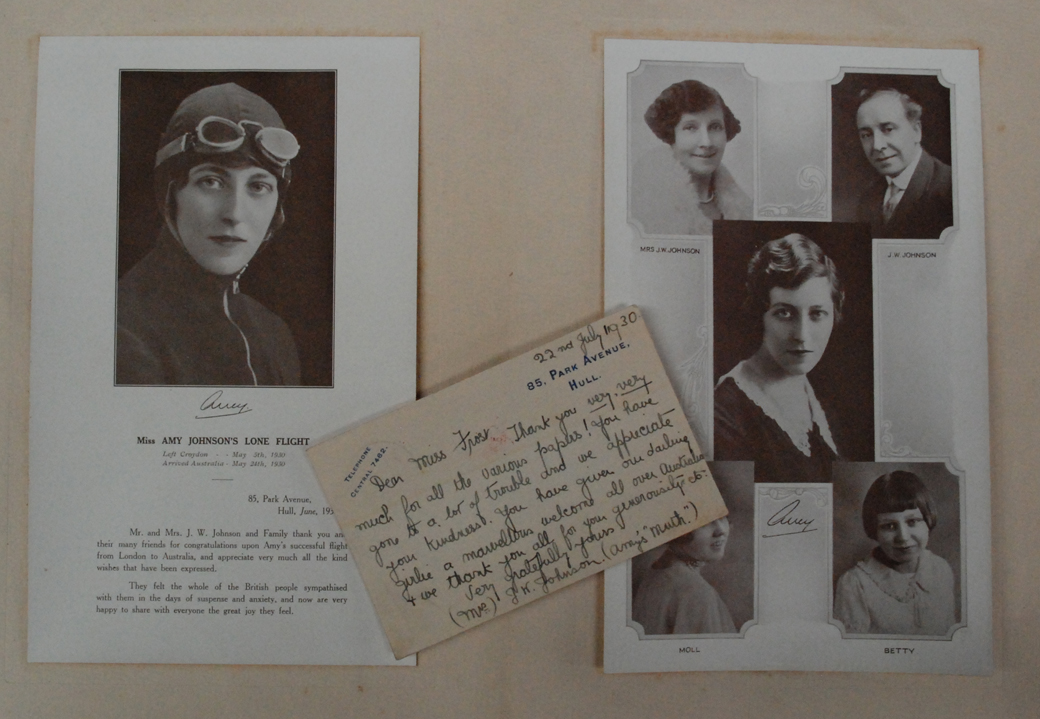 Amy
Miss AMY JOHNSON'S LONE FLIGHT
Left Croydon - - May 5th, 1930
Arrived Australia - May 24th, 1930
85, Park Avenue,
Hull, June, 193
Mr. and Mrs. J. W. Johnson and Family thank you an
their many friends for congratulations upon Amy's successful flight
from London to Australia, and appreciate very much all the kind
wishes that have been expressed.
They felt the whole of the British people sympathised
with them in the days of suspense and anxiety, and now are very
happy to share with everyone the great joy they feel.
22nd July 1930.
85, PARK AVENUE,
HULL.
TELEPHONE
CENTRAL 7462.
Dear Miss Frost. Thank you very, very
much for all the various papers! You have
gone to a lot of trouble and we appreciate
your kindness. You have given our darling
girlie a marvellous welcome all over Australia
& we thank you all for your generosity etc.
Very gratefully yours
(Mrs) J. W. Johnson. (Amy's "Much".)
MRS J.W. JOHNSON
J.W. JOHNSON
Amy
MOLL
BETTY